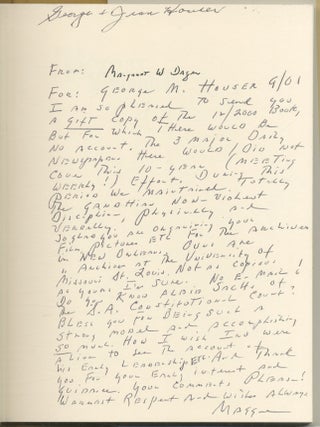 George & Jean Houser
From: Margaret W. Dagen
For: George M. Houser 9/01
I am so pleased to send you
a gift copy of the 12/2000 book,
But for which there would be
no account. The 3 major daily
newspapers there would/did not
cover this 10-year (meeting
weekly!) effort, during this
period we maintained totally
the Gandhian non-violent
discipline, physically and
verbally.
So glad you are organizing your
film, pictures etc for the archives
in New Orleans. Ours are
in Archives at the University of
Missouri St. Louis. Not as copious
as yours I'm sure. No E-mail
Do you know Albie Sachs of
the S.A. Constitutional Court?
Bless you for being such a
strong model and accomplishing
so much. How I wish Irv were
alive to see the account of
his early leadership etc. And thank
you for your early interest and
guidance. Your comments please!
Warmest respect and wishes always
Maggie